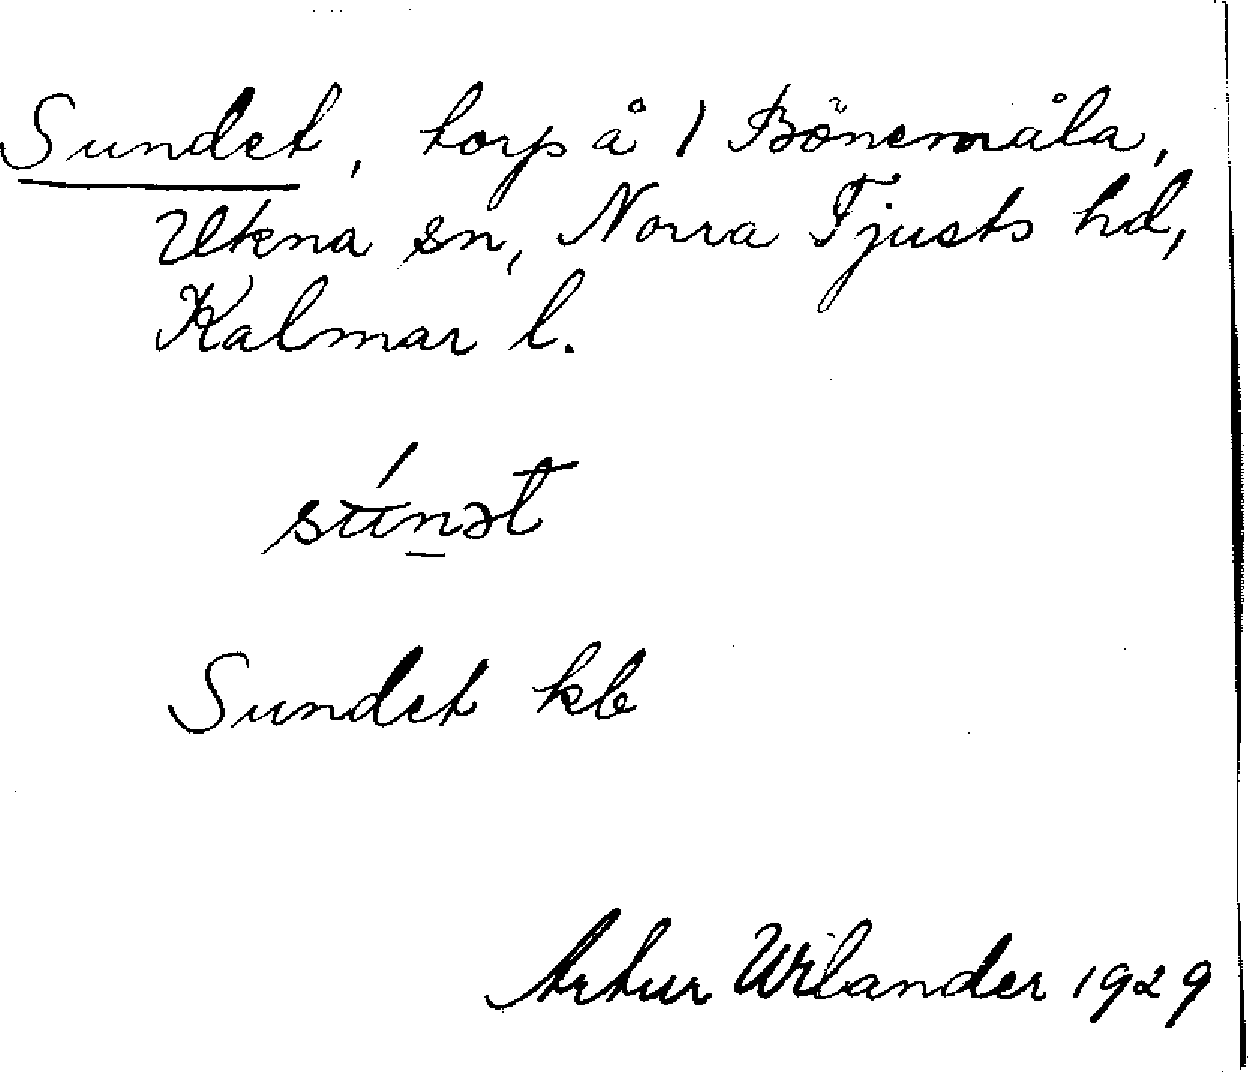 Sundet, torp å 1 Bönemåla,
Ukna sn, Norra Tjusts hd,
Kalmar l.
su̇́n̠ət
Sundet kb
Artur Wilander 1929